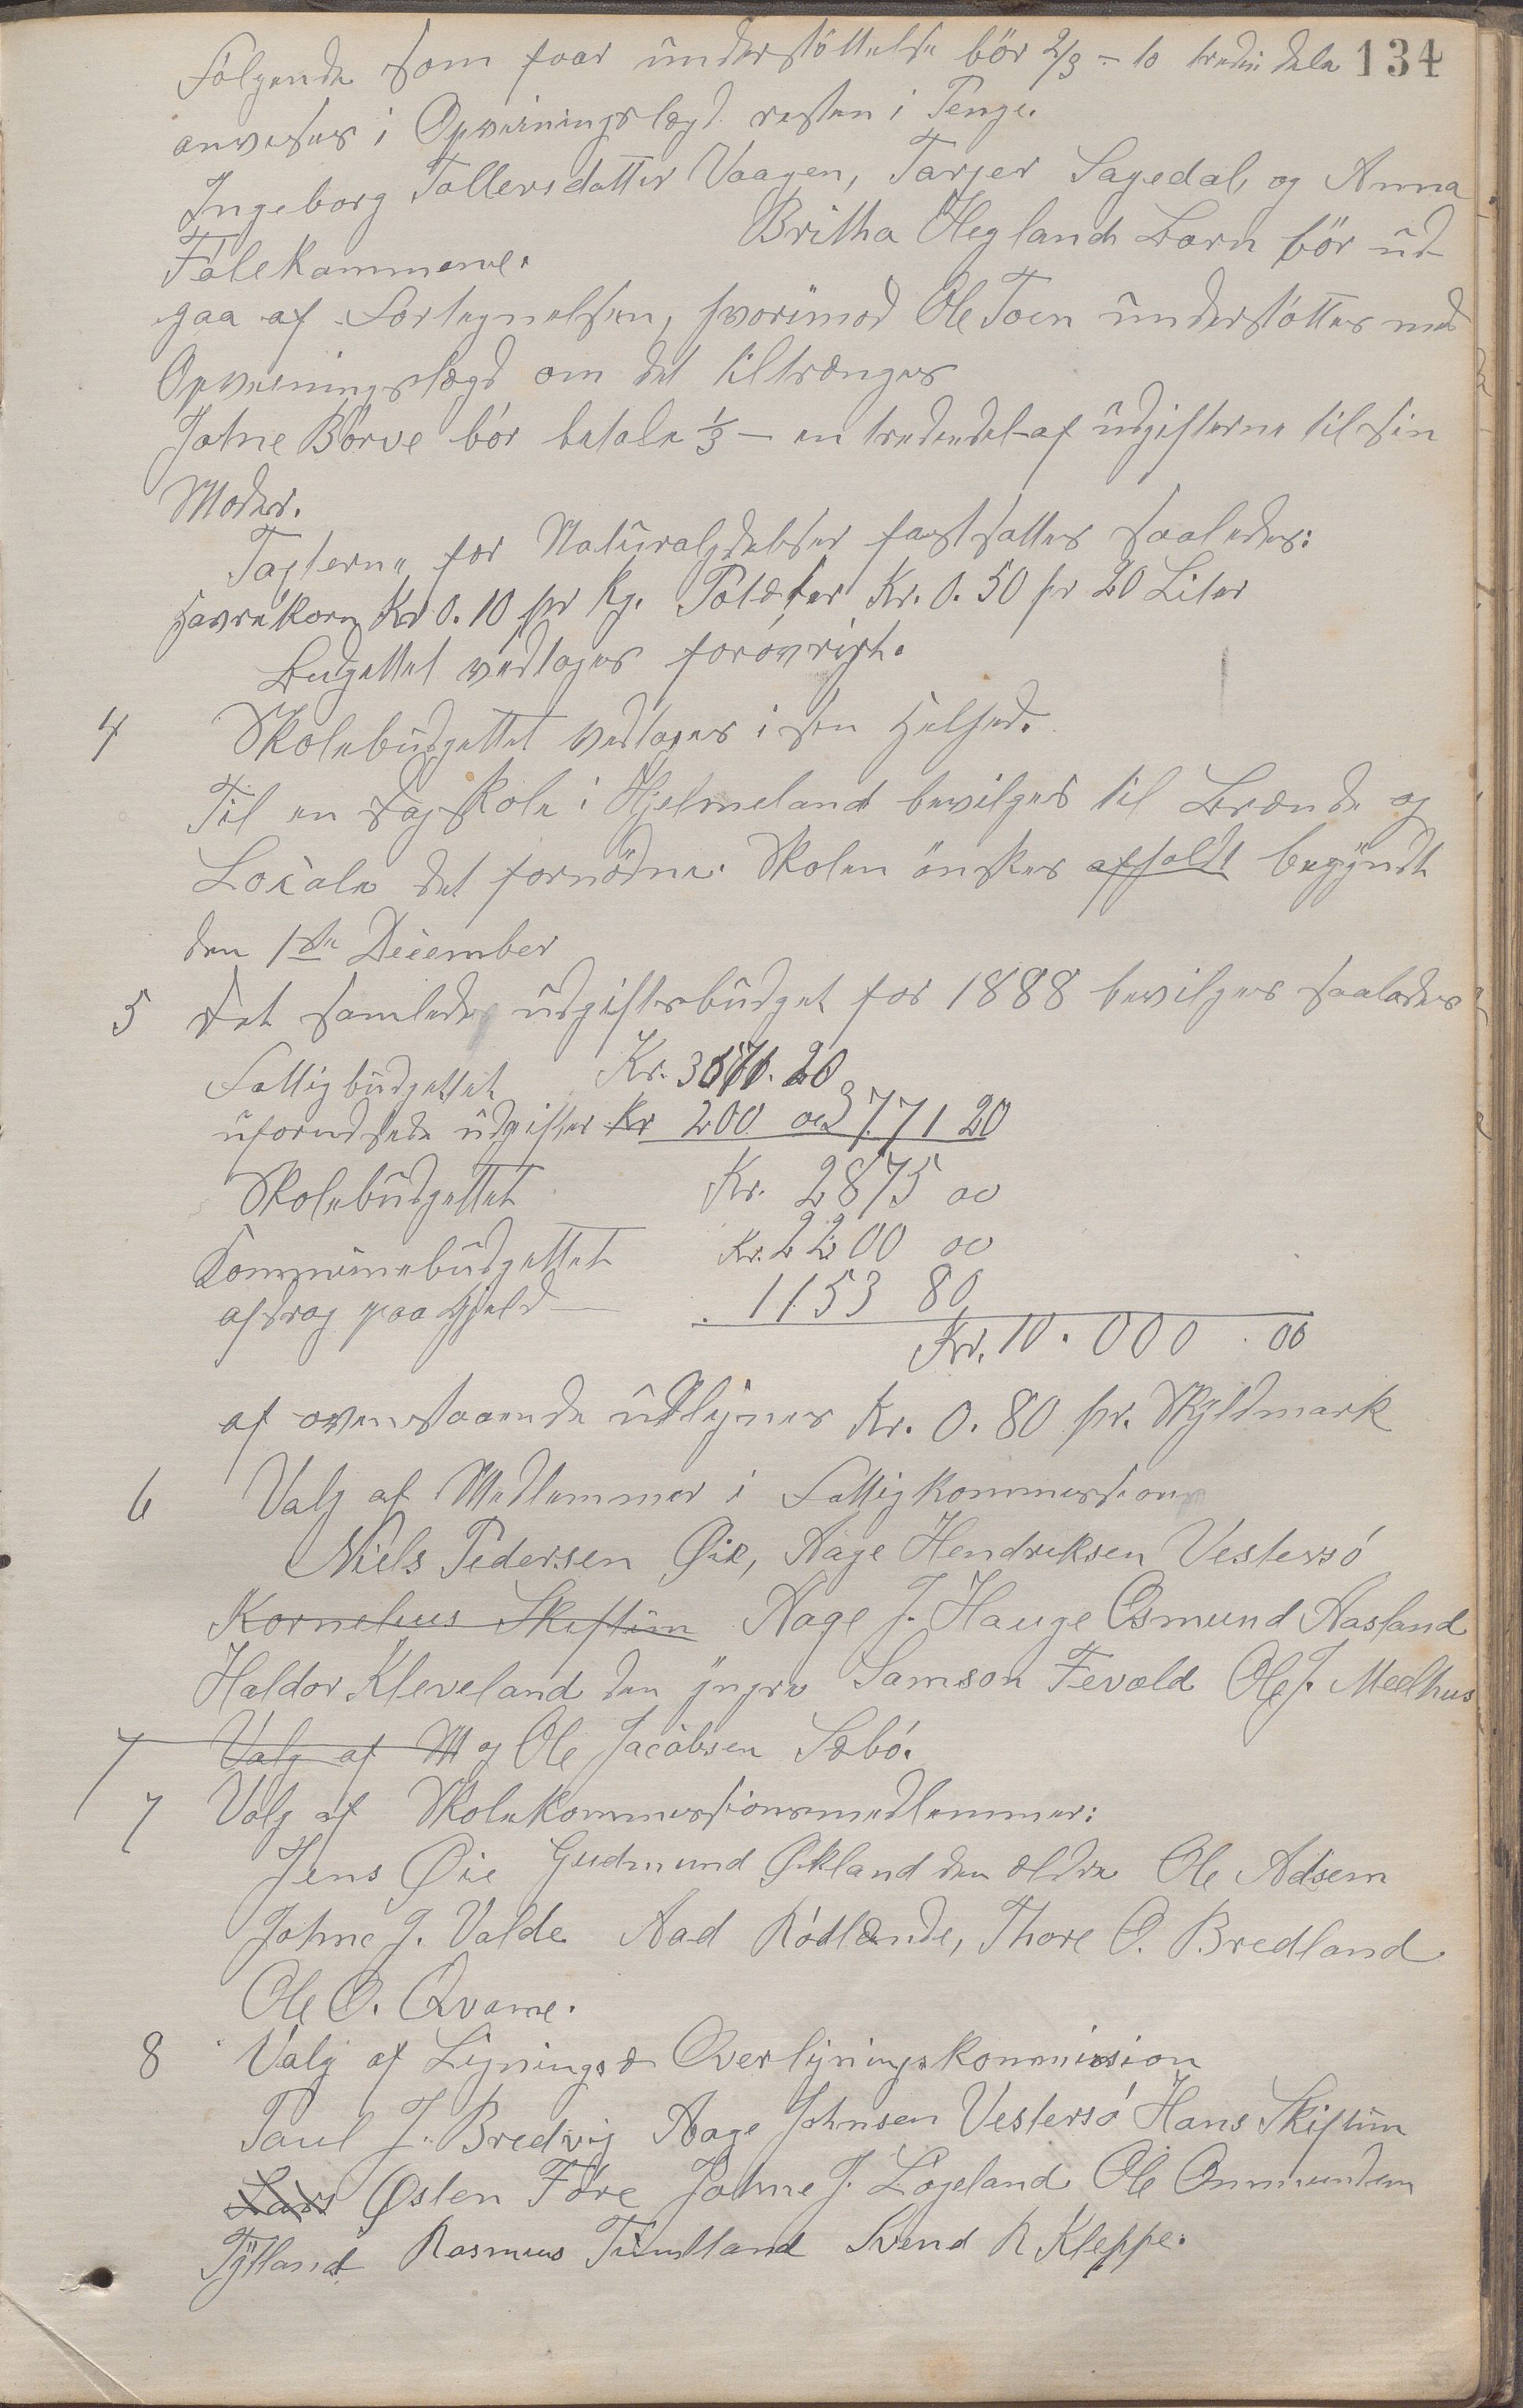 134
Følgende som faar understöttelse bör 2/3 - to tredie dele
anvises i Opværningslægd resten i Penge.
Ingeborg Tollersdatter Vaagen, Tarjer Sagedal, og Anna
Falekammene. Britha Hegland Barn bör ud-
gaa af Fortegnelsen, hvorimod Ole Toen understöttes med
Opværningslægd om det tiltrænges
Johne Börve bör betale 1/3 - en tredeedel af udgifterne til sin
Moder.
Taxterne for Naturalydelser fastsattes saaledes:
Havrekorn Kr 0.10 pr kg. Potæter Kr. 0.50 pr 20 Liter
Budgettet vedtoges forövrigt.
4 Skolebudgettet vedtoges i sin Helhed.
Til en Fagskole i Hjelmeland bevilges til Brænde og
Locale det fornödne. Skolen önskes afholdt begyndt
den 1ste December
5 Det samlede udgiftsbudget for 1888 bevilges saaledes
Fattigbudgettet Kr. 3571. 20
uforudsede udgifter Kr 200 00 3771 20
Skolebudgettet Kr. 2875 00
Kommunebudgettet Kr. 2200 00
afdrag paa Gjeld 1153 80
Kr. 10.000 . 00
af ovenstaaende udlignes Kr. 0.80 pr. Skyldmark
6 Valg af Medlemmer i Fattigkommission
Niels Pedersen Øie, Aage Hendriksen Vestersö
Kornelius Skiftun Aage J. Hauge Osmund Aasland
Haldor Kleveland den yngre Samson Fevold Ole J. Mælhus
7 Valg af M og Ole Jacobsen Sæbö.
7 Valg af Skolekommissionsmedlemmer:
Jens Øie Gudmund Økland den ældre Ole Adsem
Johne J. Valde Aad Rödlende, Thore O. Bredland
Ole O. Qvame.
8 Valg af Lignings & Overligningskommission
Paul J. Bredvig Aage Johnsen Vestersö Hans Skiftun
Lars Østen Före Johne J. Lögeland Ole Onmundsen
Tytland Rasmus Tuntland Svend R Kleppe.